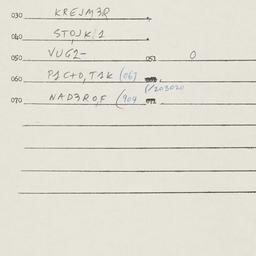 030 KREJM3R
040 STOJK/1
050 VUG2- 051 0
060 P1C+O,T1K (061
1/203020
070 NAD3ROF (904 071